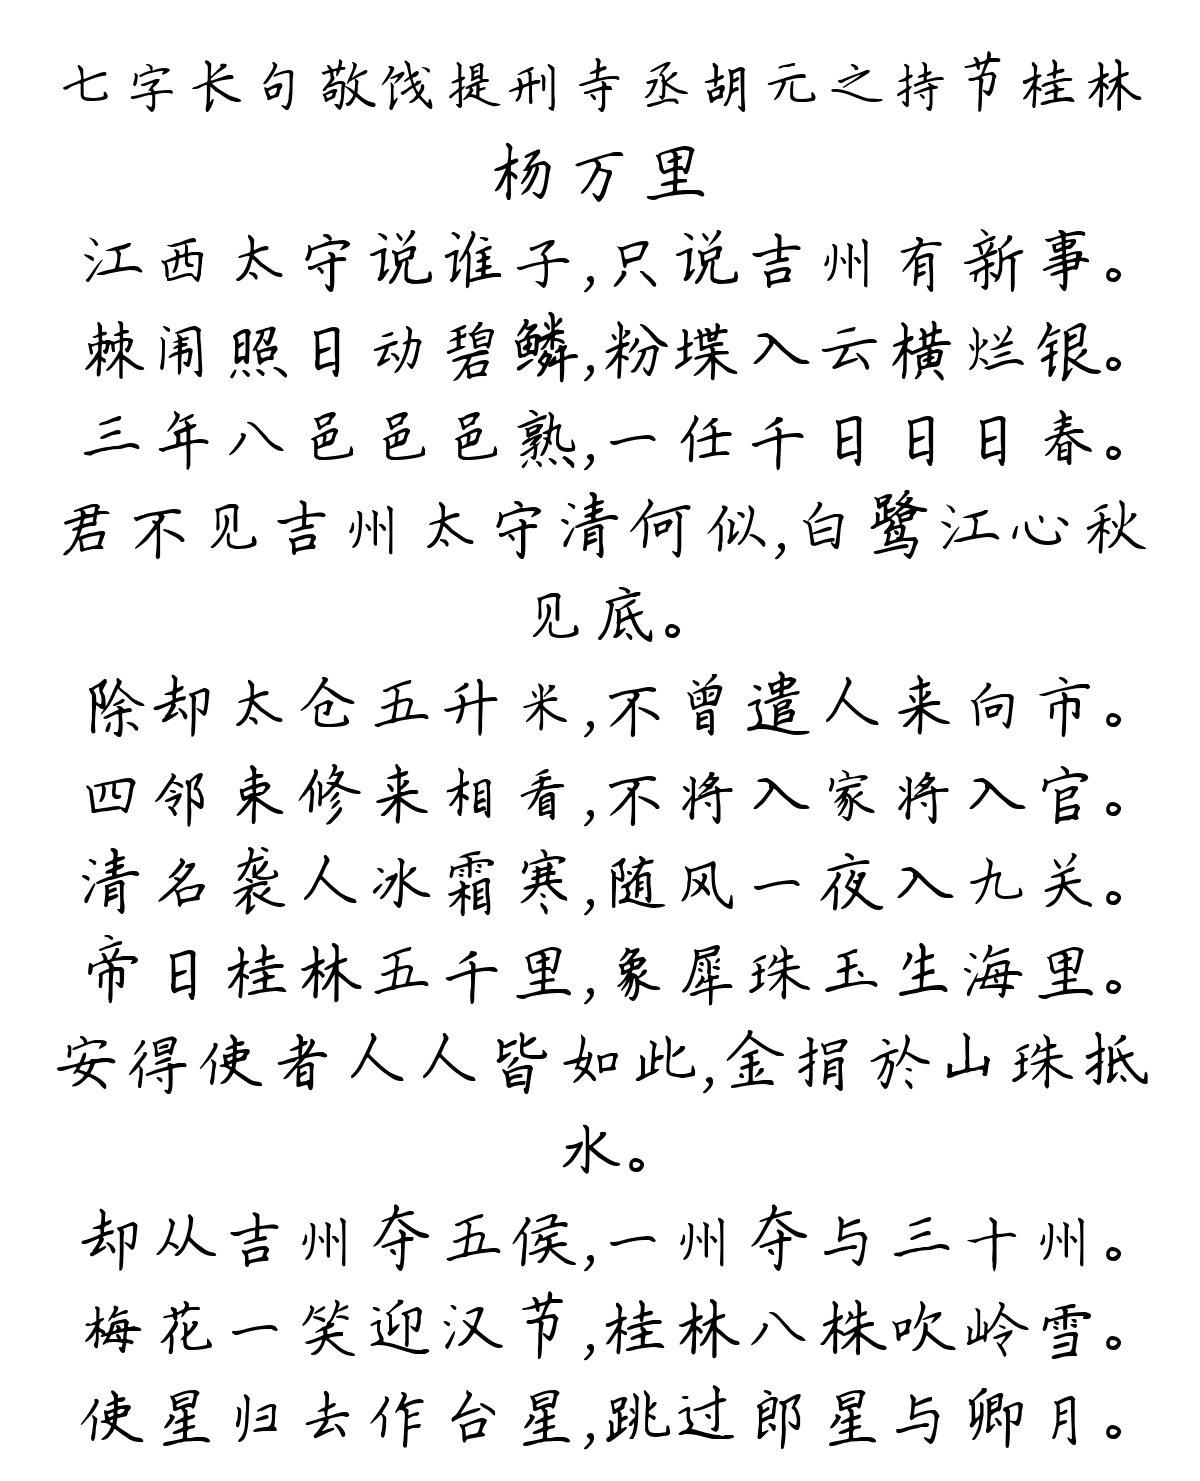 七字长句敬饯提刑寺丞胡元之持节桂林
杨万里
江西太守说谁子,只说吉州有新事。
棘闱照日动碧鳞,粉堞入云横烂银。
三年八邑邑邑熟,一任千日日日春。
君不见吉州太守清何似,白鹭江心秋
见底。
除却太仓五升米,不曾遣人来向市。
四邻束修来相看,不将入家将入官。
清名袭人冰霜寒,随风一夜入九关。
帝日桂林五千里,象犀珠玉生海里。
安得使者人人皆如此,金捐於山珠抵
水。
却从吉州夺五侯,一州夺与三十州。
梅花一笑迎汉节,桂林八株吹岭雪。
使星归去作台星,跳过郎星与卿月。